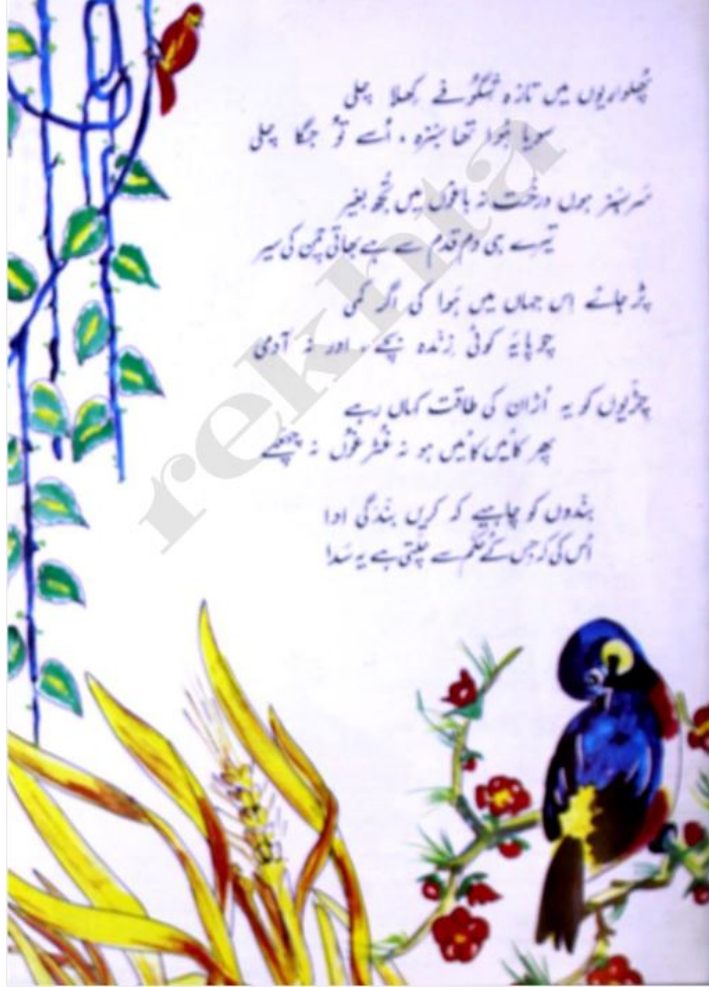 پھلواریوں میں تازہ شگُوفے کِھلا چلی
سویا ہُوا تھا سبزہ ، اُسے تُو جگا چلی
سَرسبز ہوں درخْت نہ باغوں میں تُجھ بغیر
تیرے ہی دم قدم سے ہے بھاتی چمن کی سیر
پڑ جائے اِس جہاں میں ہَوا کی اگر کمی
چوپایَہ کوئی زِندہ بچے ، اور نہ آدمی
چِڑیوں کو یہ اُڑان کی طاقت کہاں رہے
پھر کائیں کائیں ہو نہ غُٹرغُوں نہ چہچہے
بندوں کو چاہیے کہ کریں بندگی ادا
اُس کی کہ جس کے حُکم سے چلتی ہے یہ سَدا
rekhta